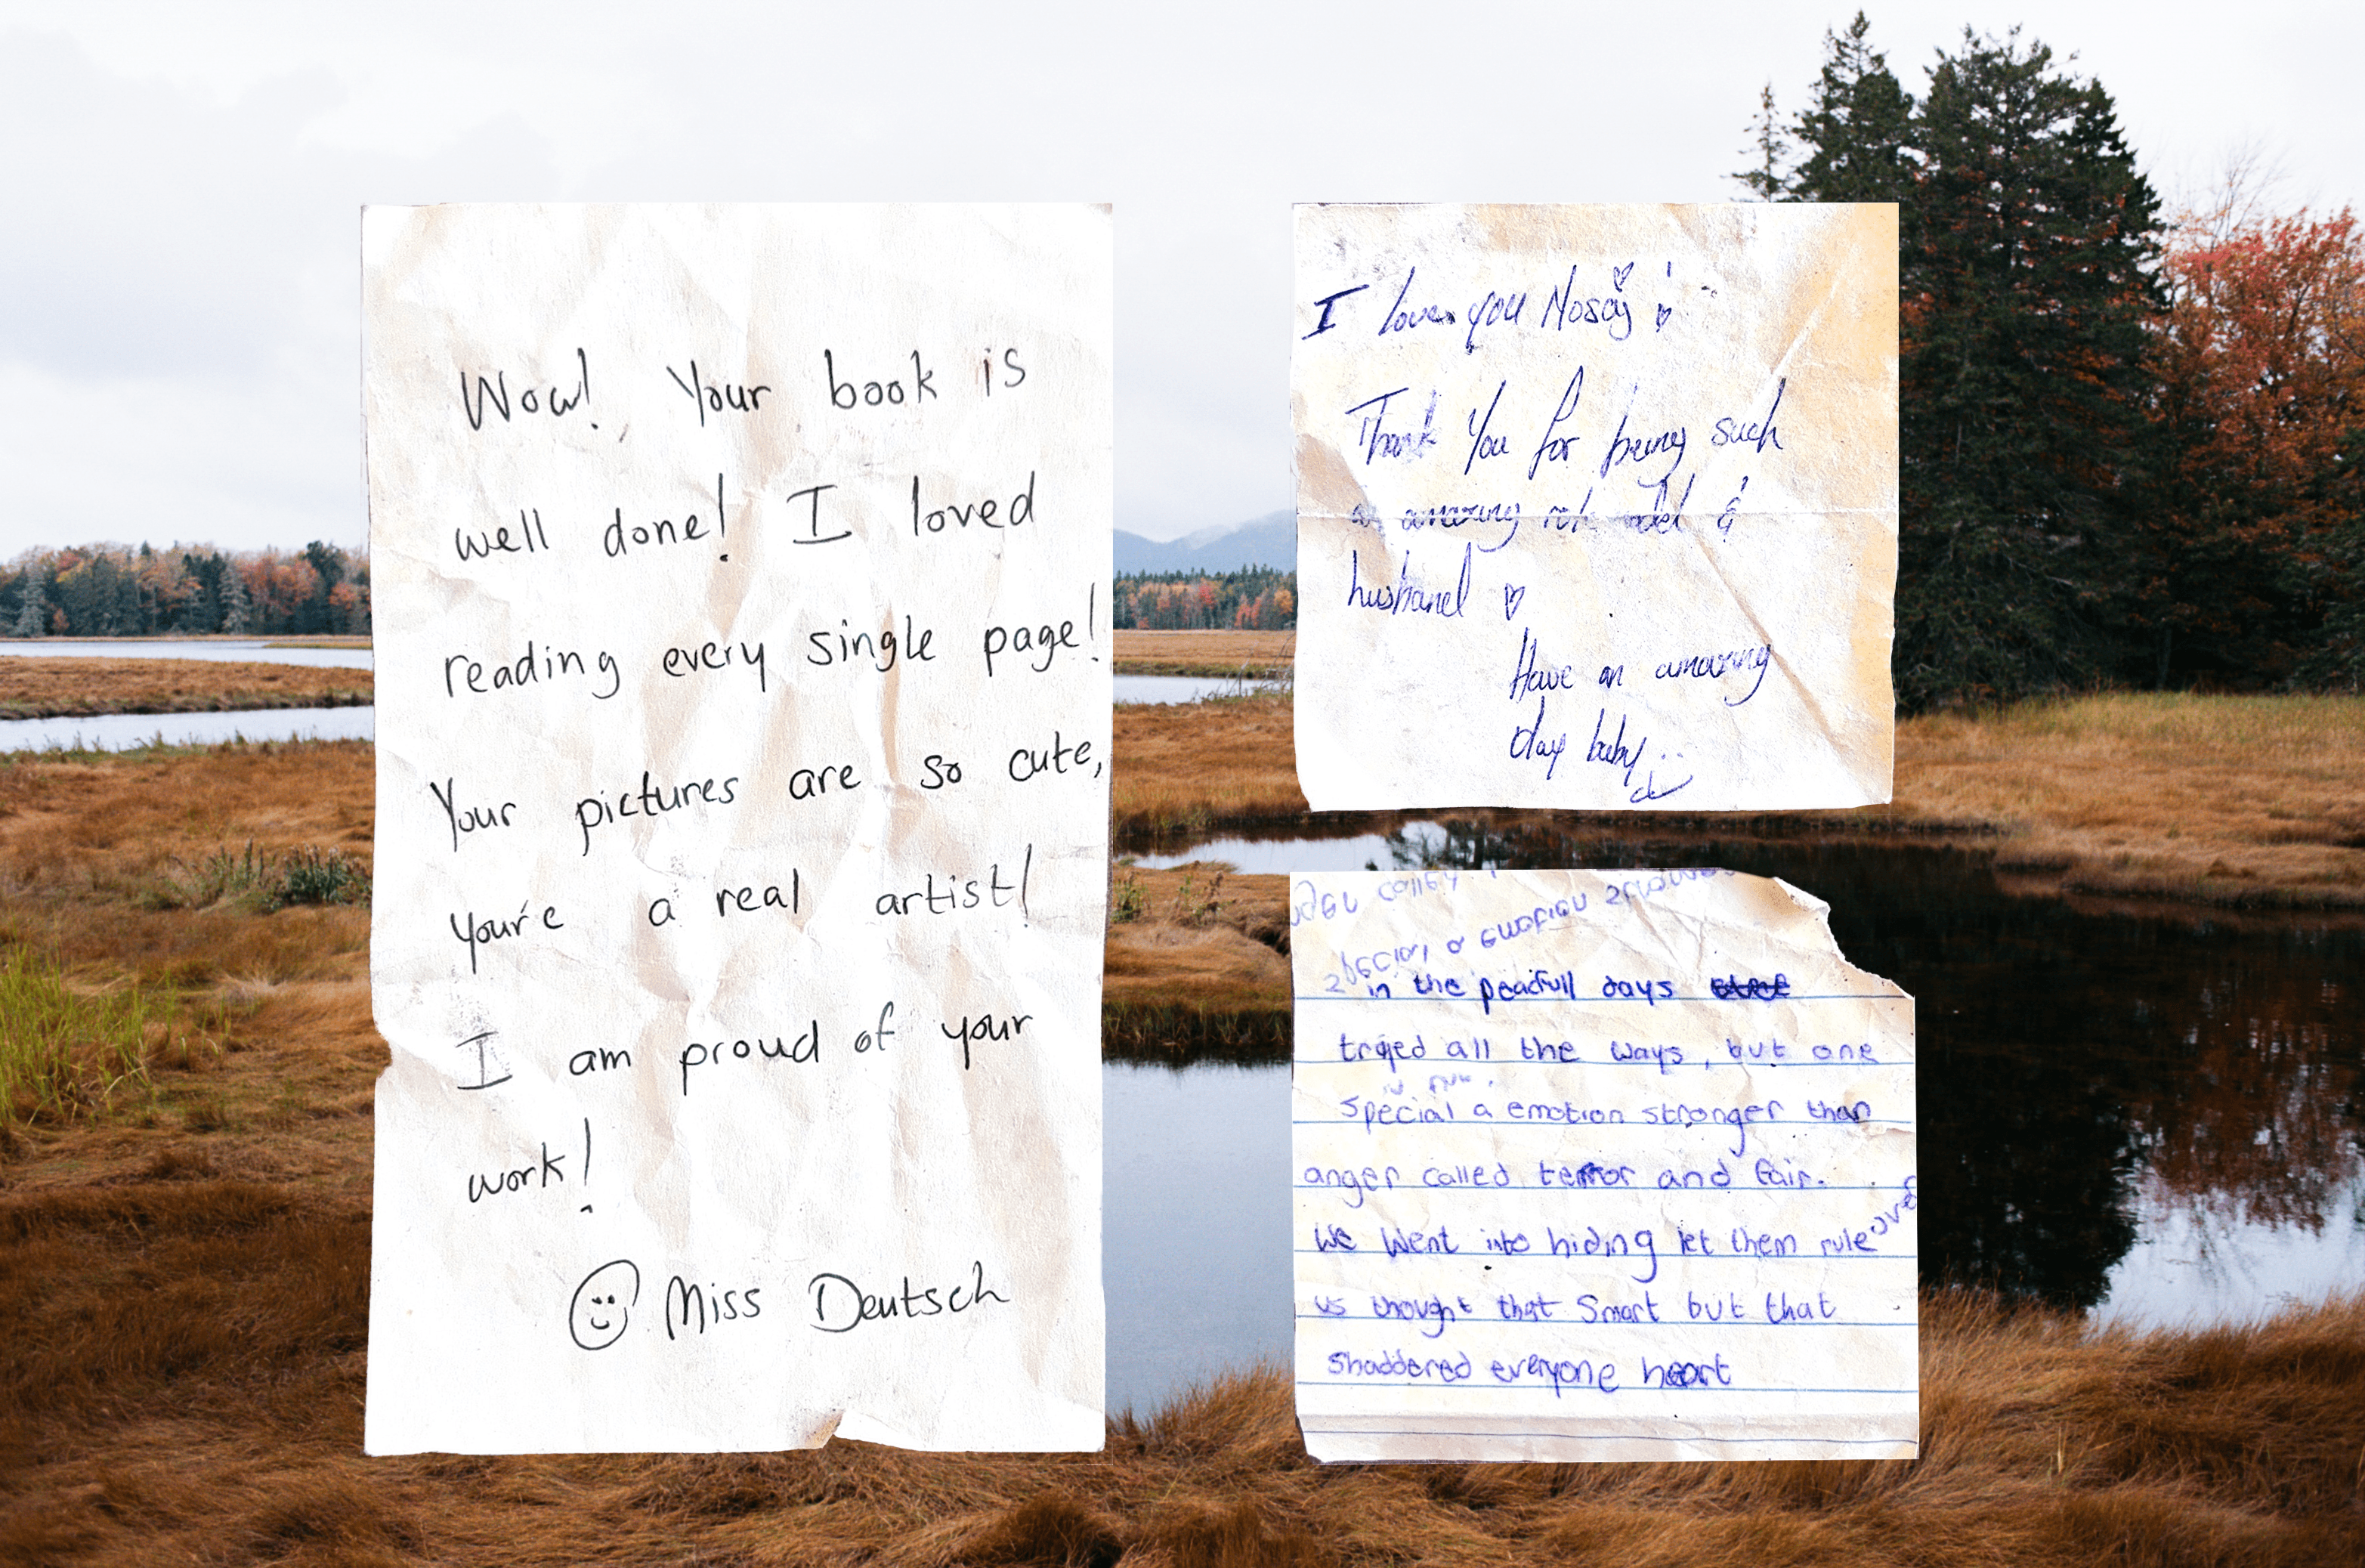 Wow! Your book is
well done! I loved
reading every single page!
Your pictures are so cute,
your'e a real artist!
I am proud of your
work!
Miss Deutsch
I love you
Thank You for being such
an amazing role model &
husband
Have an amazing
day baby
special a emotion
in the peacfull days
trajed all the ways, but one
special a emotion stronger than
anger called terror and fair.
We Went into hiding let them rule over
us thought that Smart but that
shaddered everyone heart